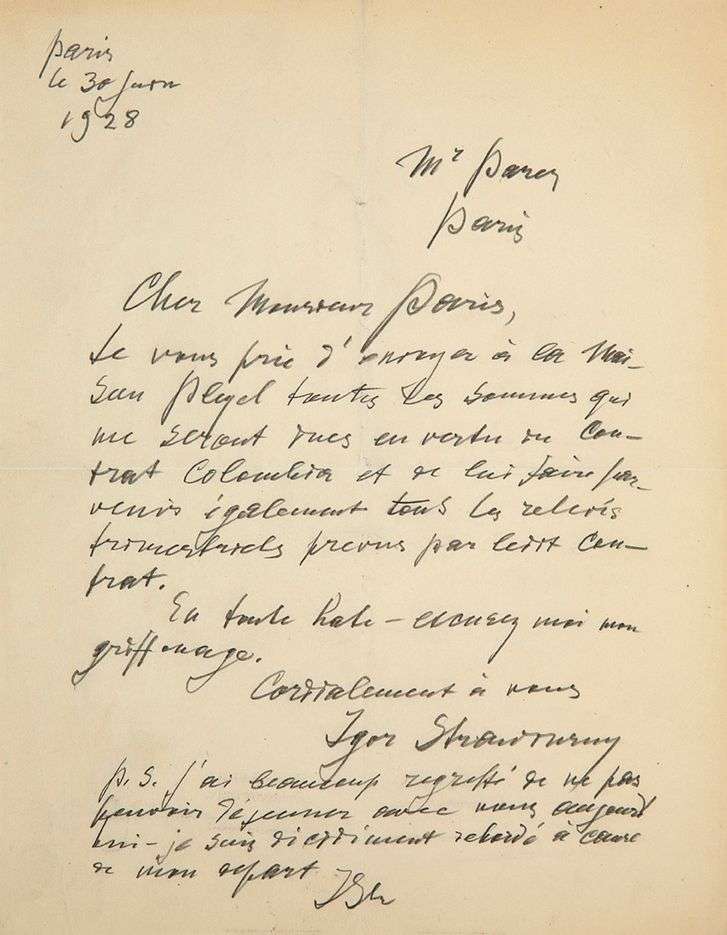 Paris
le 30 Juin
1928
Mr Paris
Paris
Cher Monsieur Paris,
Je vous prie d'envoyer à la Mai-
son Pleyel toutes les sommes qui
me seront dues en vertu du Con-
trat Colombia et de lui faire par-
venir également tous les relevés
trimestriels prevus par ledit Con-
trat.
En toute hate – excusez moi mon
griffonage.
Cordialement à vous
Igor Strawinsky
P. S. J'ai beaucoup regretté de ne pas
pouvoir déjeuner avec vous aujourd'
hui – je suis décidément débordé à cause
de mon depart
IStr